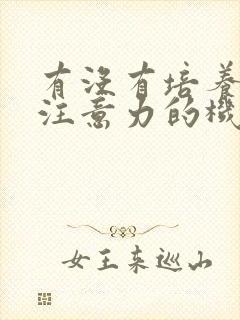 有没有培养
注意力的機
女王来巡山